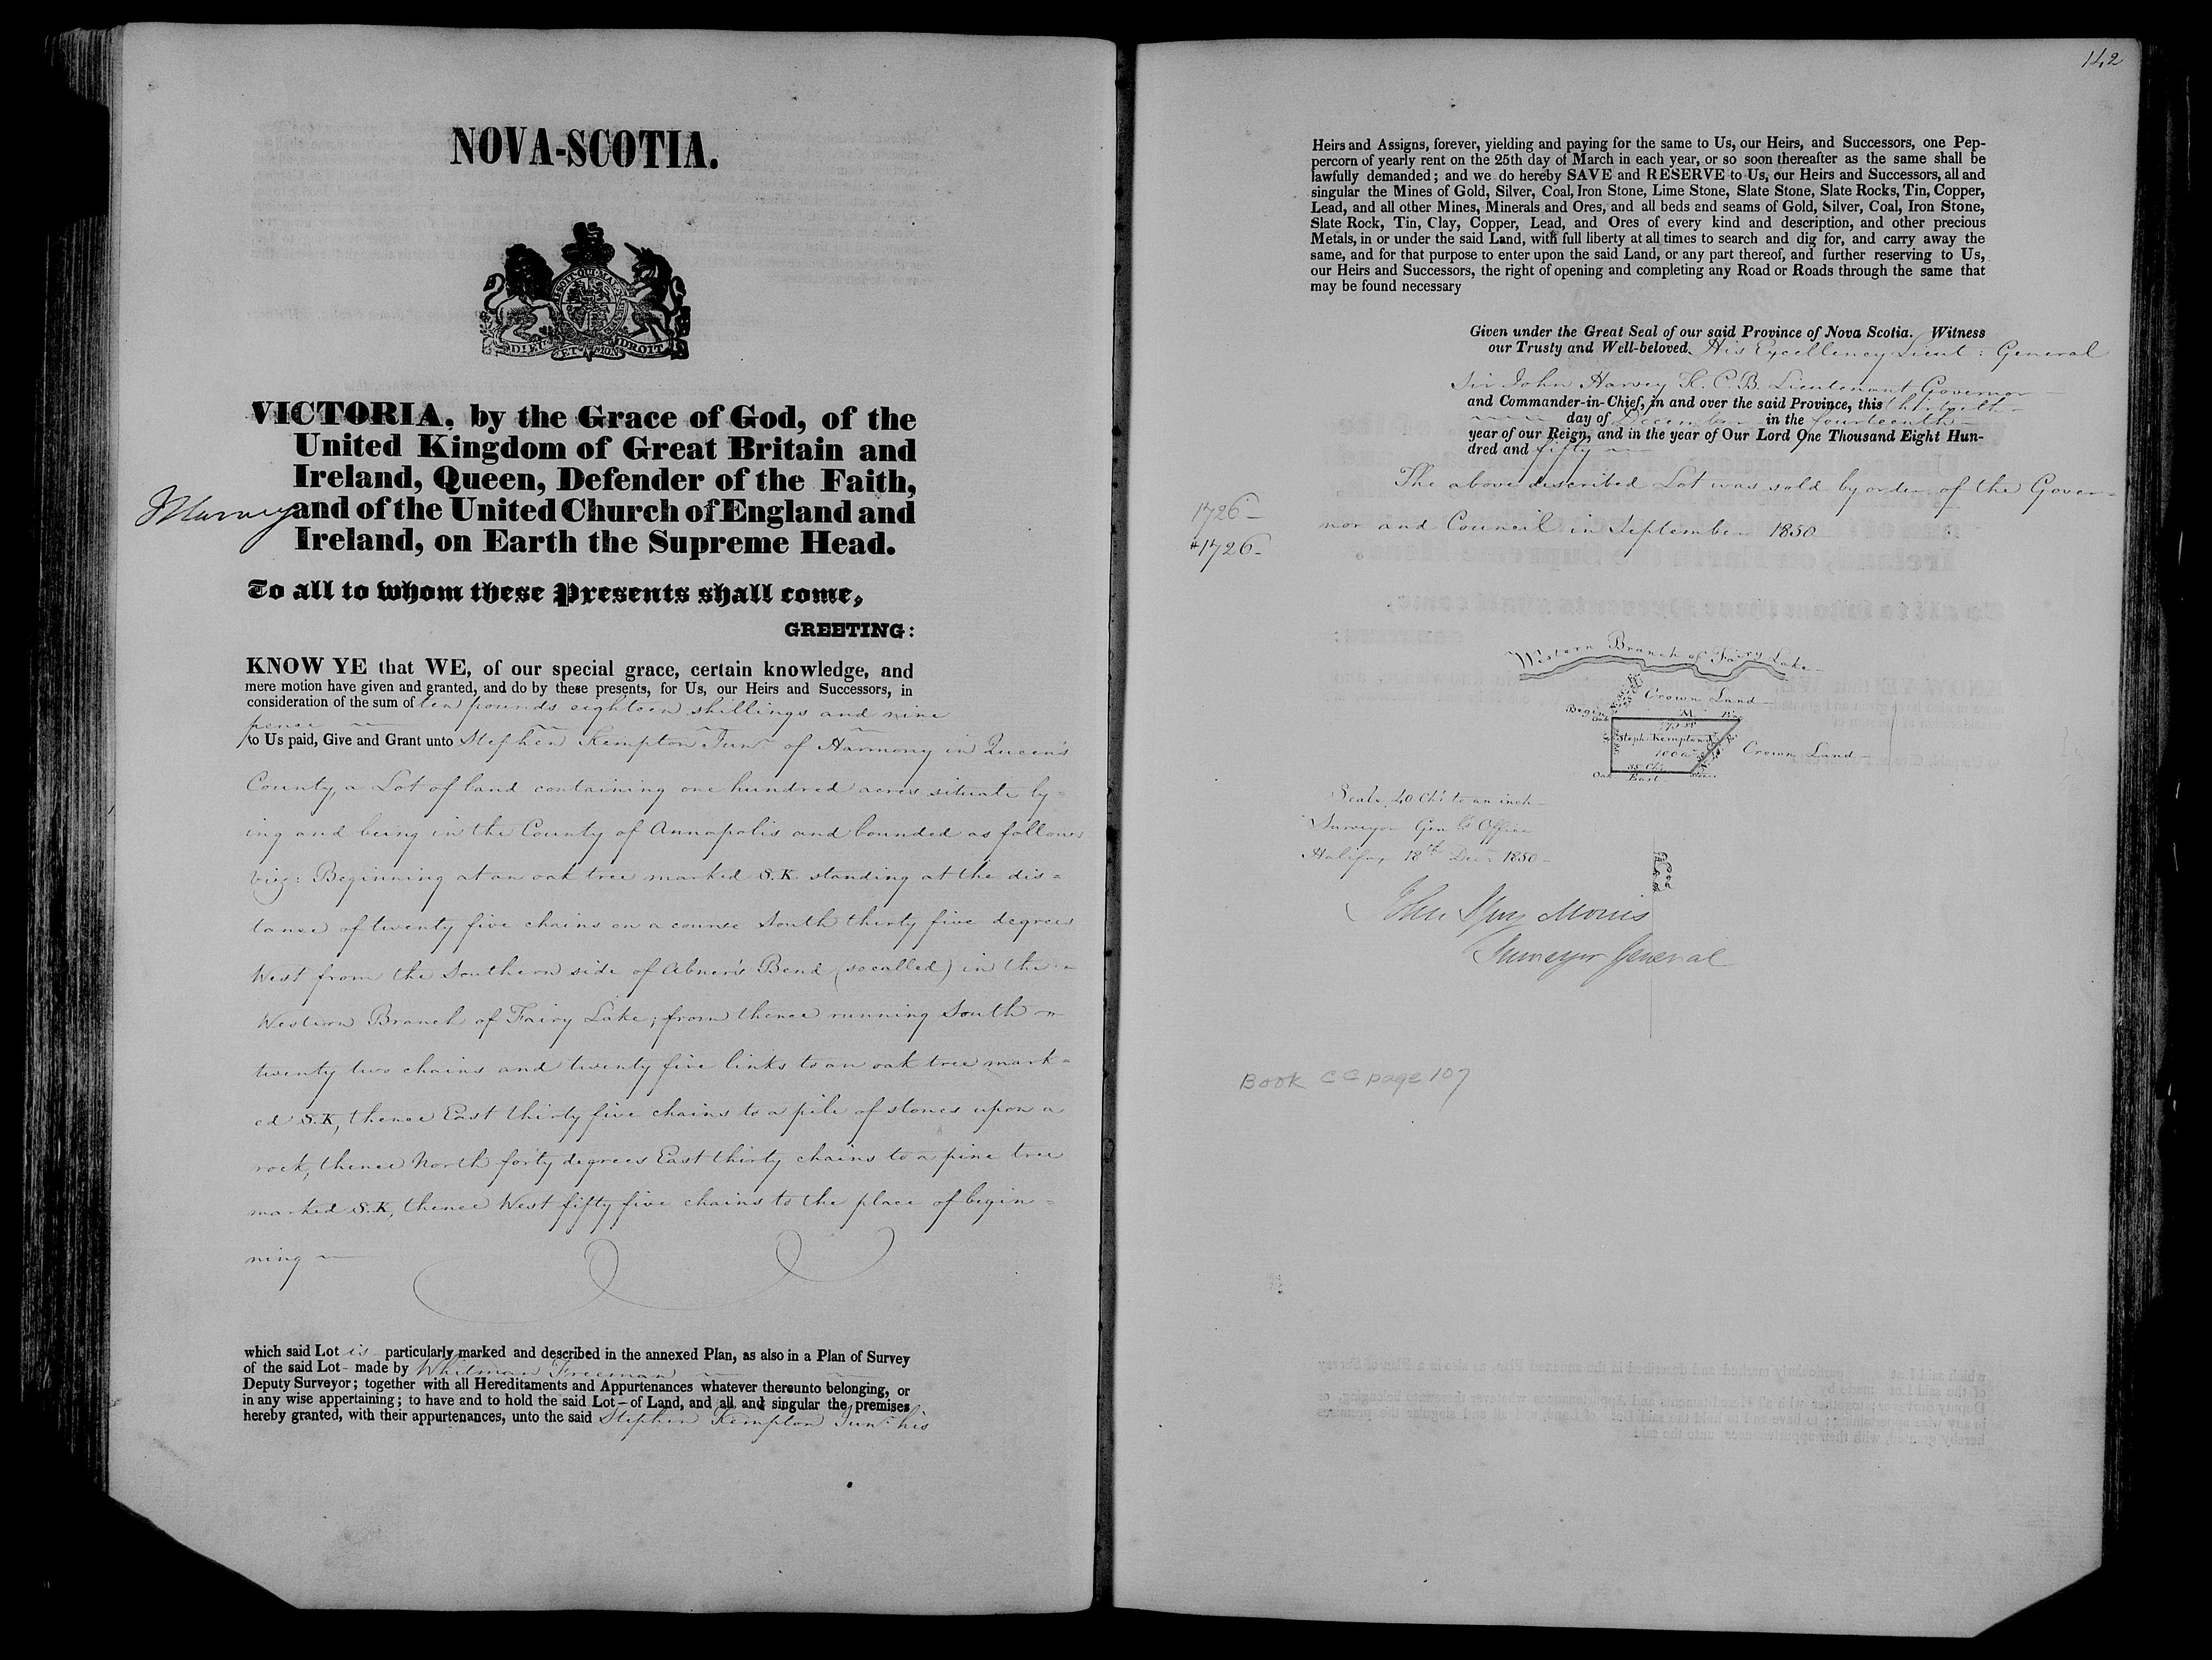 NOVA-SCOTIA.
DIEU ET MON DROIT
VICTORIA, by the Grace of God, of the
United Kingdom of Great Britain and
Ireland, Queen, Defender of the Faith,
and of the United Church of England and
Ireland, on Earth the Supreme Head.
To all to whom these Presents shall come,
GREETING:
KNOW YE that WE, of our special grace, certain knowledge, and
mere motion have given and granted, and do by these presents, for Us, our Heirs and Successors, in
consideration of the sum of ten pounds eighteen shillings and nine
pence
to Us paid, Give and Grant unto Stephen Kempton Junr. of Harmony in Queen's
County, a Lot of land containing one hundred acres situate ly=
ing and being in the County of Annapolis and bounded as follows
viz: Beginning at an oak tree marked S.K. standing at the dis=
tance of twenty five chains on a course South thirty five degrees
West from the Southern side of Abner's Bend (so called) in the
Western Branch of Fairy Lake; from thence running South
twenty two chains and twenty five links to an oak tree mark=
ed S.K, thence East thirty five chains to a pile of stones upon a
rock, thence North forty degrees East thirty chains to a pine tree
marked S.K, thence West fifty five chains to the place of begin=
ning
which said Lot is particularly marked and described in the annexed Plan, as also in a Plan of Survey
of the said Lot - made by Whitman Freeman
Deputy Surveyor; together with all Hereditaments and Appurtenances whatever thereunto belonging, or
in any wise appertaining; to have and to hold the said Lot - of Land, and all and singular the premises
hereby granted, with their appurtenances, unto the said Stephen Kempton Junr. his
142
Heirs and Assigns, forever, yielding and paying for the same to Us, our Heirs, and Successors, one Pep-
percorn of yearly rent on the 25th day of March in each year, or so soon thereafter as the same shall be
lawfully demanded; and we do hereby SAVE and RESERVE to Us, our Heirs and Successors, all and
singular the Mines of Gold, Silver, Coal, Iron Stone, Lime Stone, Slate Stone, Slate Rocks, Tin, Copper,
Lead, and all other Mines, Minerals and Ores, and all beds and seams of Gold, Silver, Coal, Iron Stone,
Slate Rock, Tin, Clay, Copper, Lead, and Ores of every kind and description, and other precious
Metals, in or under the said Land, with full liberty at all times to search and dig for, and carry away the
same, and for that purpose to enter upon the said Land, or any part thereof, and further reserving to Us,
our Heirs and Successors, the right of opening and completing any Road or Roads through the same that
may be found necessary
Given under the Great Seal of our said Province of Nova Scotia. Witness
our Trusty and Well-beloved His Excellency Lieut: General
Sir John Harvey K.C.B. Lieutenant Governor
and Commander-in-Chief, in and over the said Province, this thirtieth
day of December in the fourteenth
year of our Reign, and in the year of Our Lord One Thousand Eight Hun-
dred and fifty
The above described Lot was sold by order of the Gover=
nor and Council in September 1850
1726
#1726
Western Branch of Fairy Lake
Crown Land
Begin
Oak
Steph: Kempton Jr
100 a
Crown Land
35 Chs
Oak East Stones
Scale, 40 Chs to an inch
Surveyor Genl's Office
Halifax 18th Decr. 1850
John Spry Morris
Surveyor General
Book CC page 107